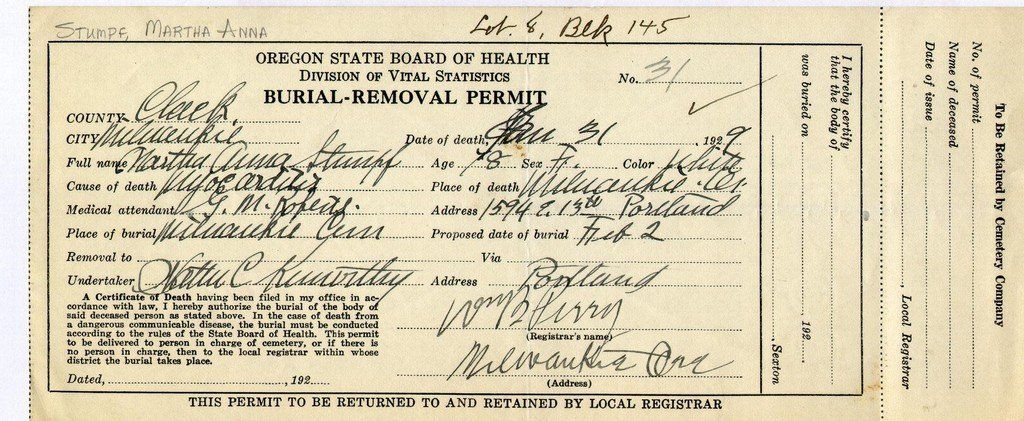 STUMPF, MARTHA ANNA
Lot. 8, Blk 145
OREGON STATE BOARD OF HEALTH
DIVISION OF VITAL STATISTICS
No. 31
BURIAL-REMOVAL PERMIT
COUNTY Clack.
CITY Milwaukie Date of death, Jan 31 1929
Full name Martha Anna Stumpf Age 78 Sex F. Color White
Cause of death Myocarditis Place of death Milwaukie. Or.
Medical attendant G. M. Address 1594 E. 13th Portland
Place of burial Milwaukie Cem Proposed date of burial Feb 2
Removal to Via
Undertaker Walter C Kenworthy Address Portland
A Certificate of Death having been filed in my office in ac-
cordance with law, I hereby authorize the burial of the body of
said deceased person as stated above. In the case of death from
a dangerous communicable disease, the burial must be conducted
according to the rules of the State Board of Health. This permit
to be delivered to person in charge of cemetery, or if there is
no person in charge, then to the local registrar within whose
district the burial takes place.
Dated, 192
(Registrar's name)
Milwaukie Ore
(Address)
THIS PERMIT TO BE RETURNED TO AND RETAINED BY LOCAL REGISTRAR
I hereby certify
that the body of
was buried on 192
, Sexton
To Be Retained by Cemetery Company
No. of permit
Name of deceased
Date of issue
, Local Registrar